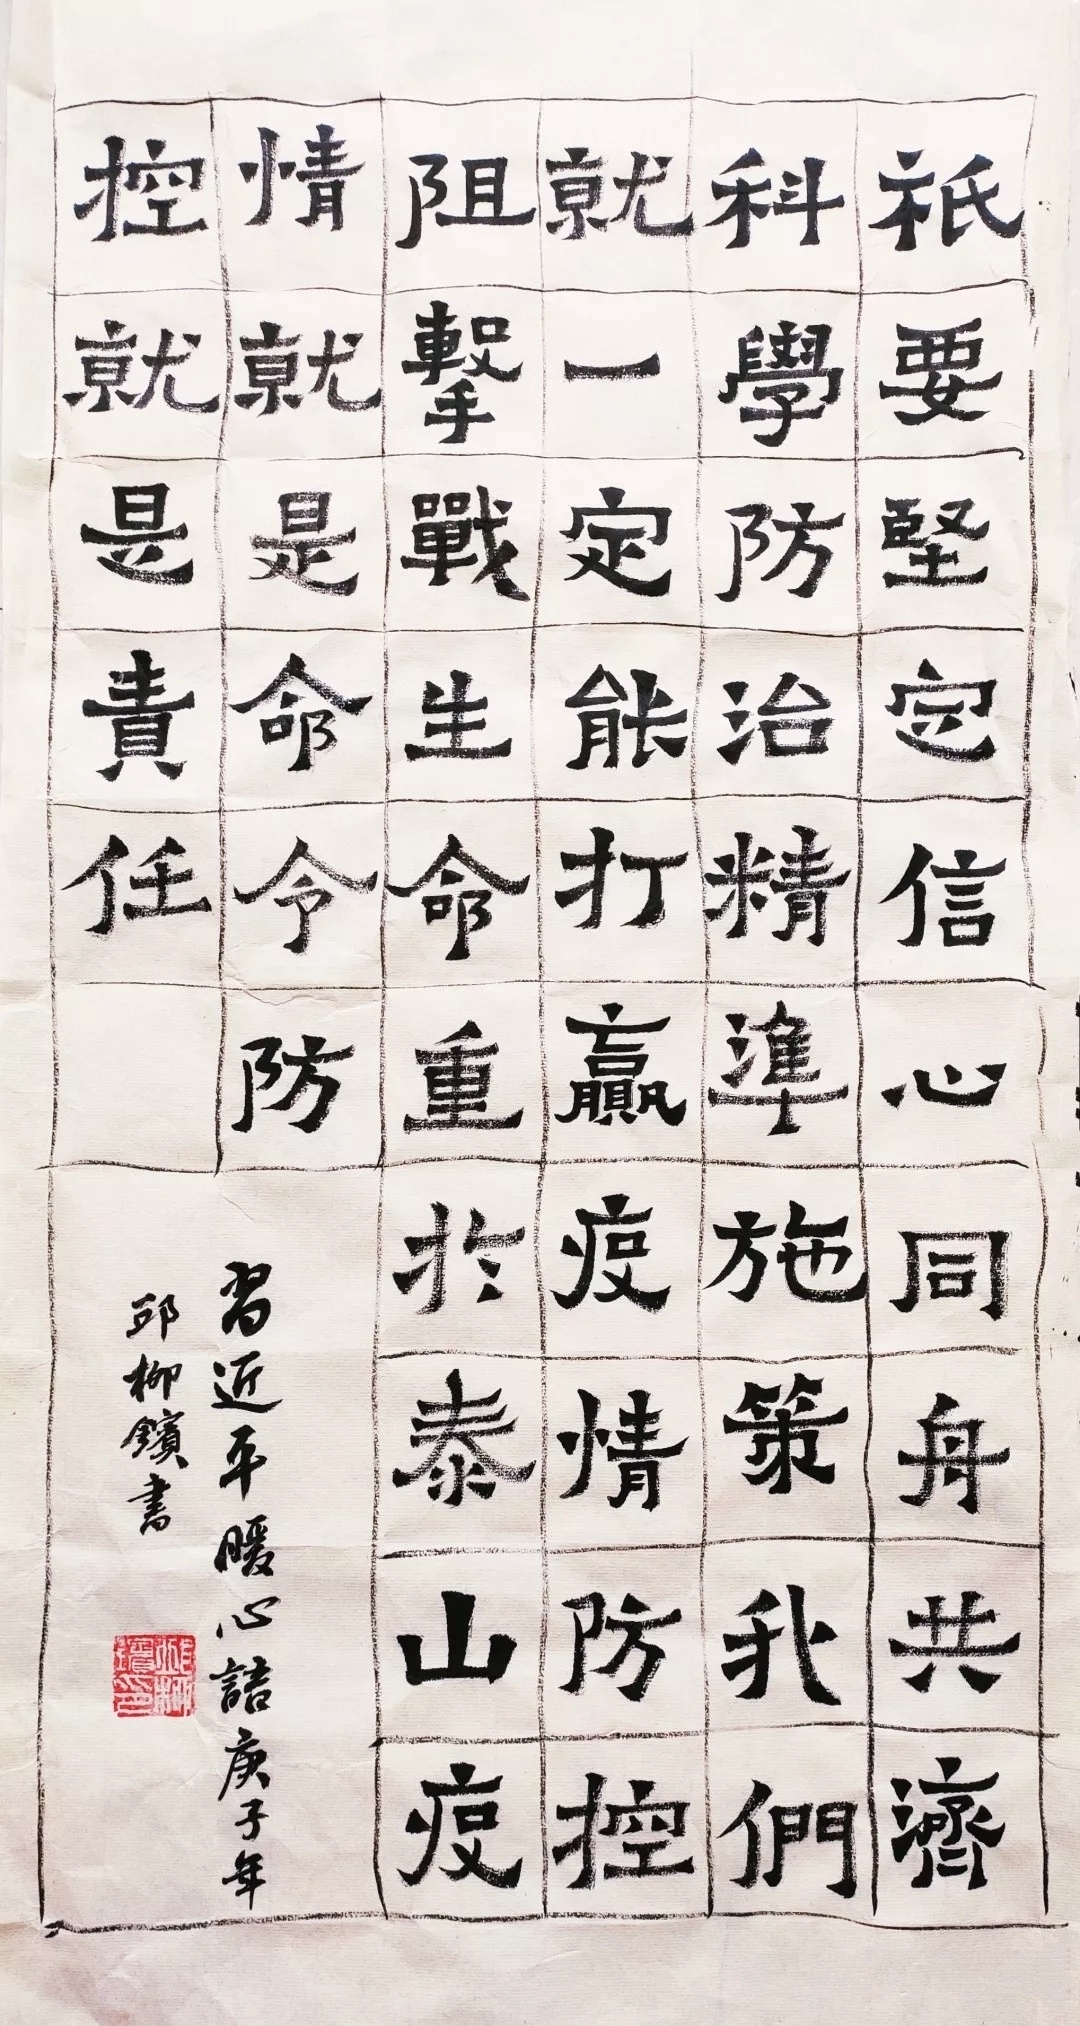 祇要堅定信心同舟共濟
科學防治精準施策我們
就一定能打贏疫情防控
阻擊戰生命重於泰山疫
情就是命令防
控就是責任
習近平暖心語庚子年
邱柳鑌書